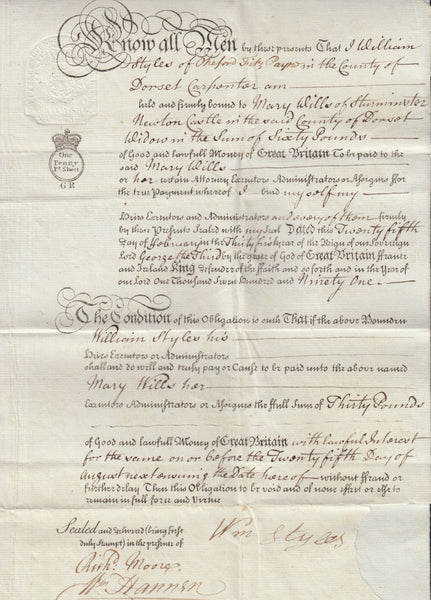 Know all Men by these presents That I William
Styles of Okeford Fitz Payne in the County of
Dorset Carpenter am
held and firmly bound to Mary Wills of Sturminster
Newton Castle in the said County of Dorset
Widow in the Sum of Sixty Pounds
of Good and Lawfull Money of Great Britain To be paid to the
said Mary Wills
or her certain Attorney Executors Administrators or Assignes ffor
the true Payment whereof I bind myself my
Heirs Executors and Administrators and every of them firmly
by these Presents Sealed with my Seal Dated this Twenty fifth
Day of February in the Thirty first year of the Reign of our Sovereign
Lord George the Third by the grace of God of Great Britain ffrance
and Ireland King Defender of the ffaith and so forth and in the Year of
our Lord One Thousand Seven Hundred and Ninety One
One
Penny
Pr. Sheet
GR
The Condition of this Obligation is such That if the above Bounden
William Styles his
Heirs Executors or Administrators
shall and do well and truly pay or Cause to be paid unto the above named
Mary Wills her
Executors Administrators or Assignes the ffull Sum of Thirty Pounds
of Good and Lawfull Money of Great Britain with lawful Interest
for the same on or before the Twenty fifth Day of
August next ensuing the Date hereof without ffraud or
further delay Then this Obligation to be void and of none effect or else to
remain in full force and virtue
Sealed and delivered (being first
duly stampt) in the presence of
Wm Styles
Richd. Moore
Wm Hannen